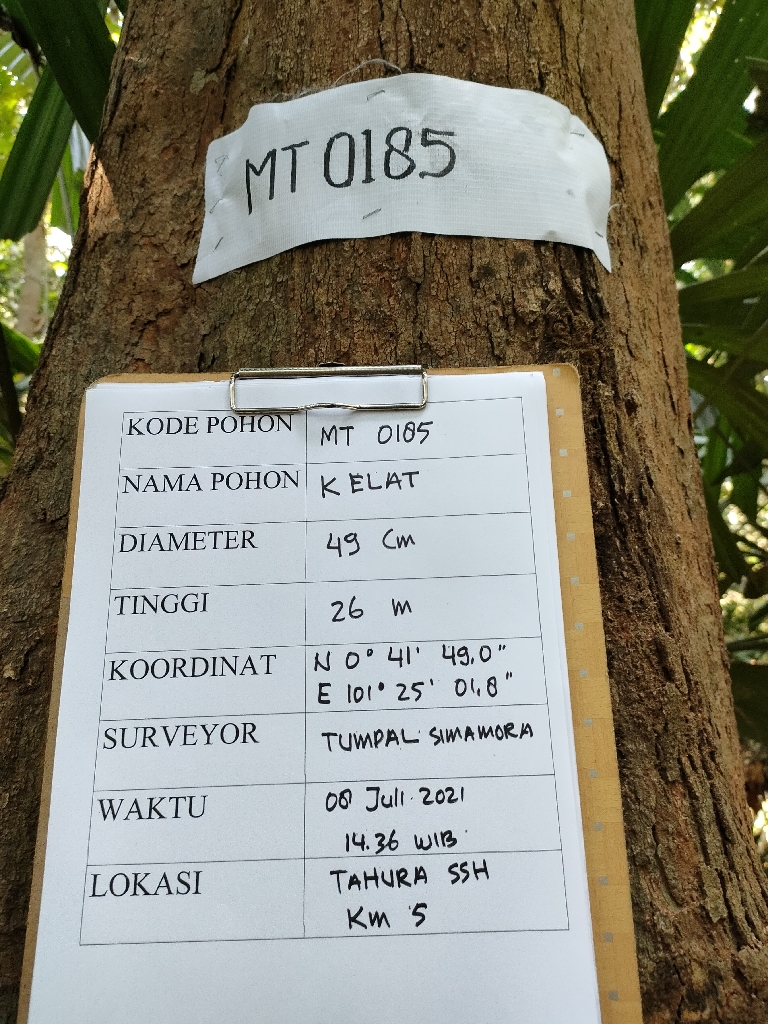 MT 0185
KODE POHON MT 0185
NAMA POHON KELAT
DIAMETER 49 Cm
TINGGI 26 m
KOORDINAT N 0° 41' 49.0"
E 101° 25' 01.8"
SURVEYOR TUMPAL SIMAMORA
WAKTU 08 Juli 2021
14.36 WIB
LOKASI TAHURA SSH
Km 5